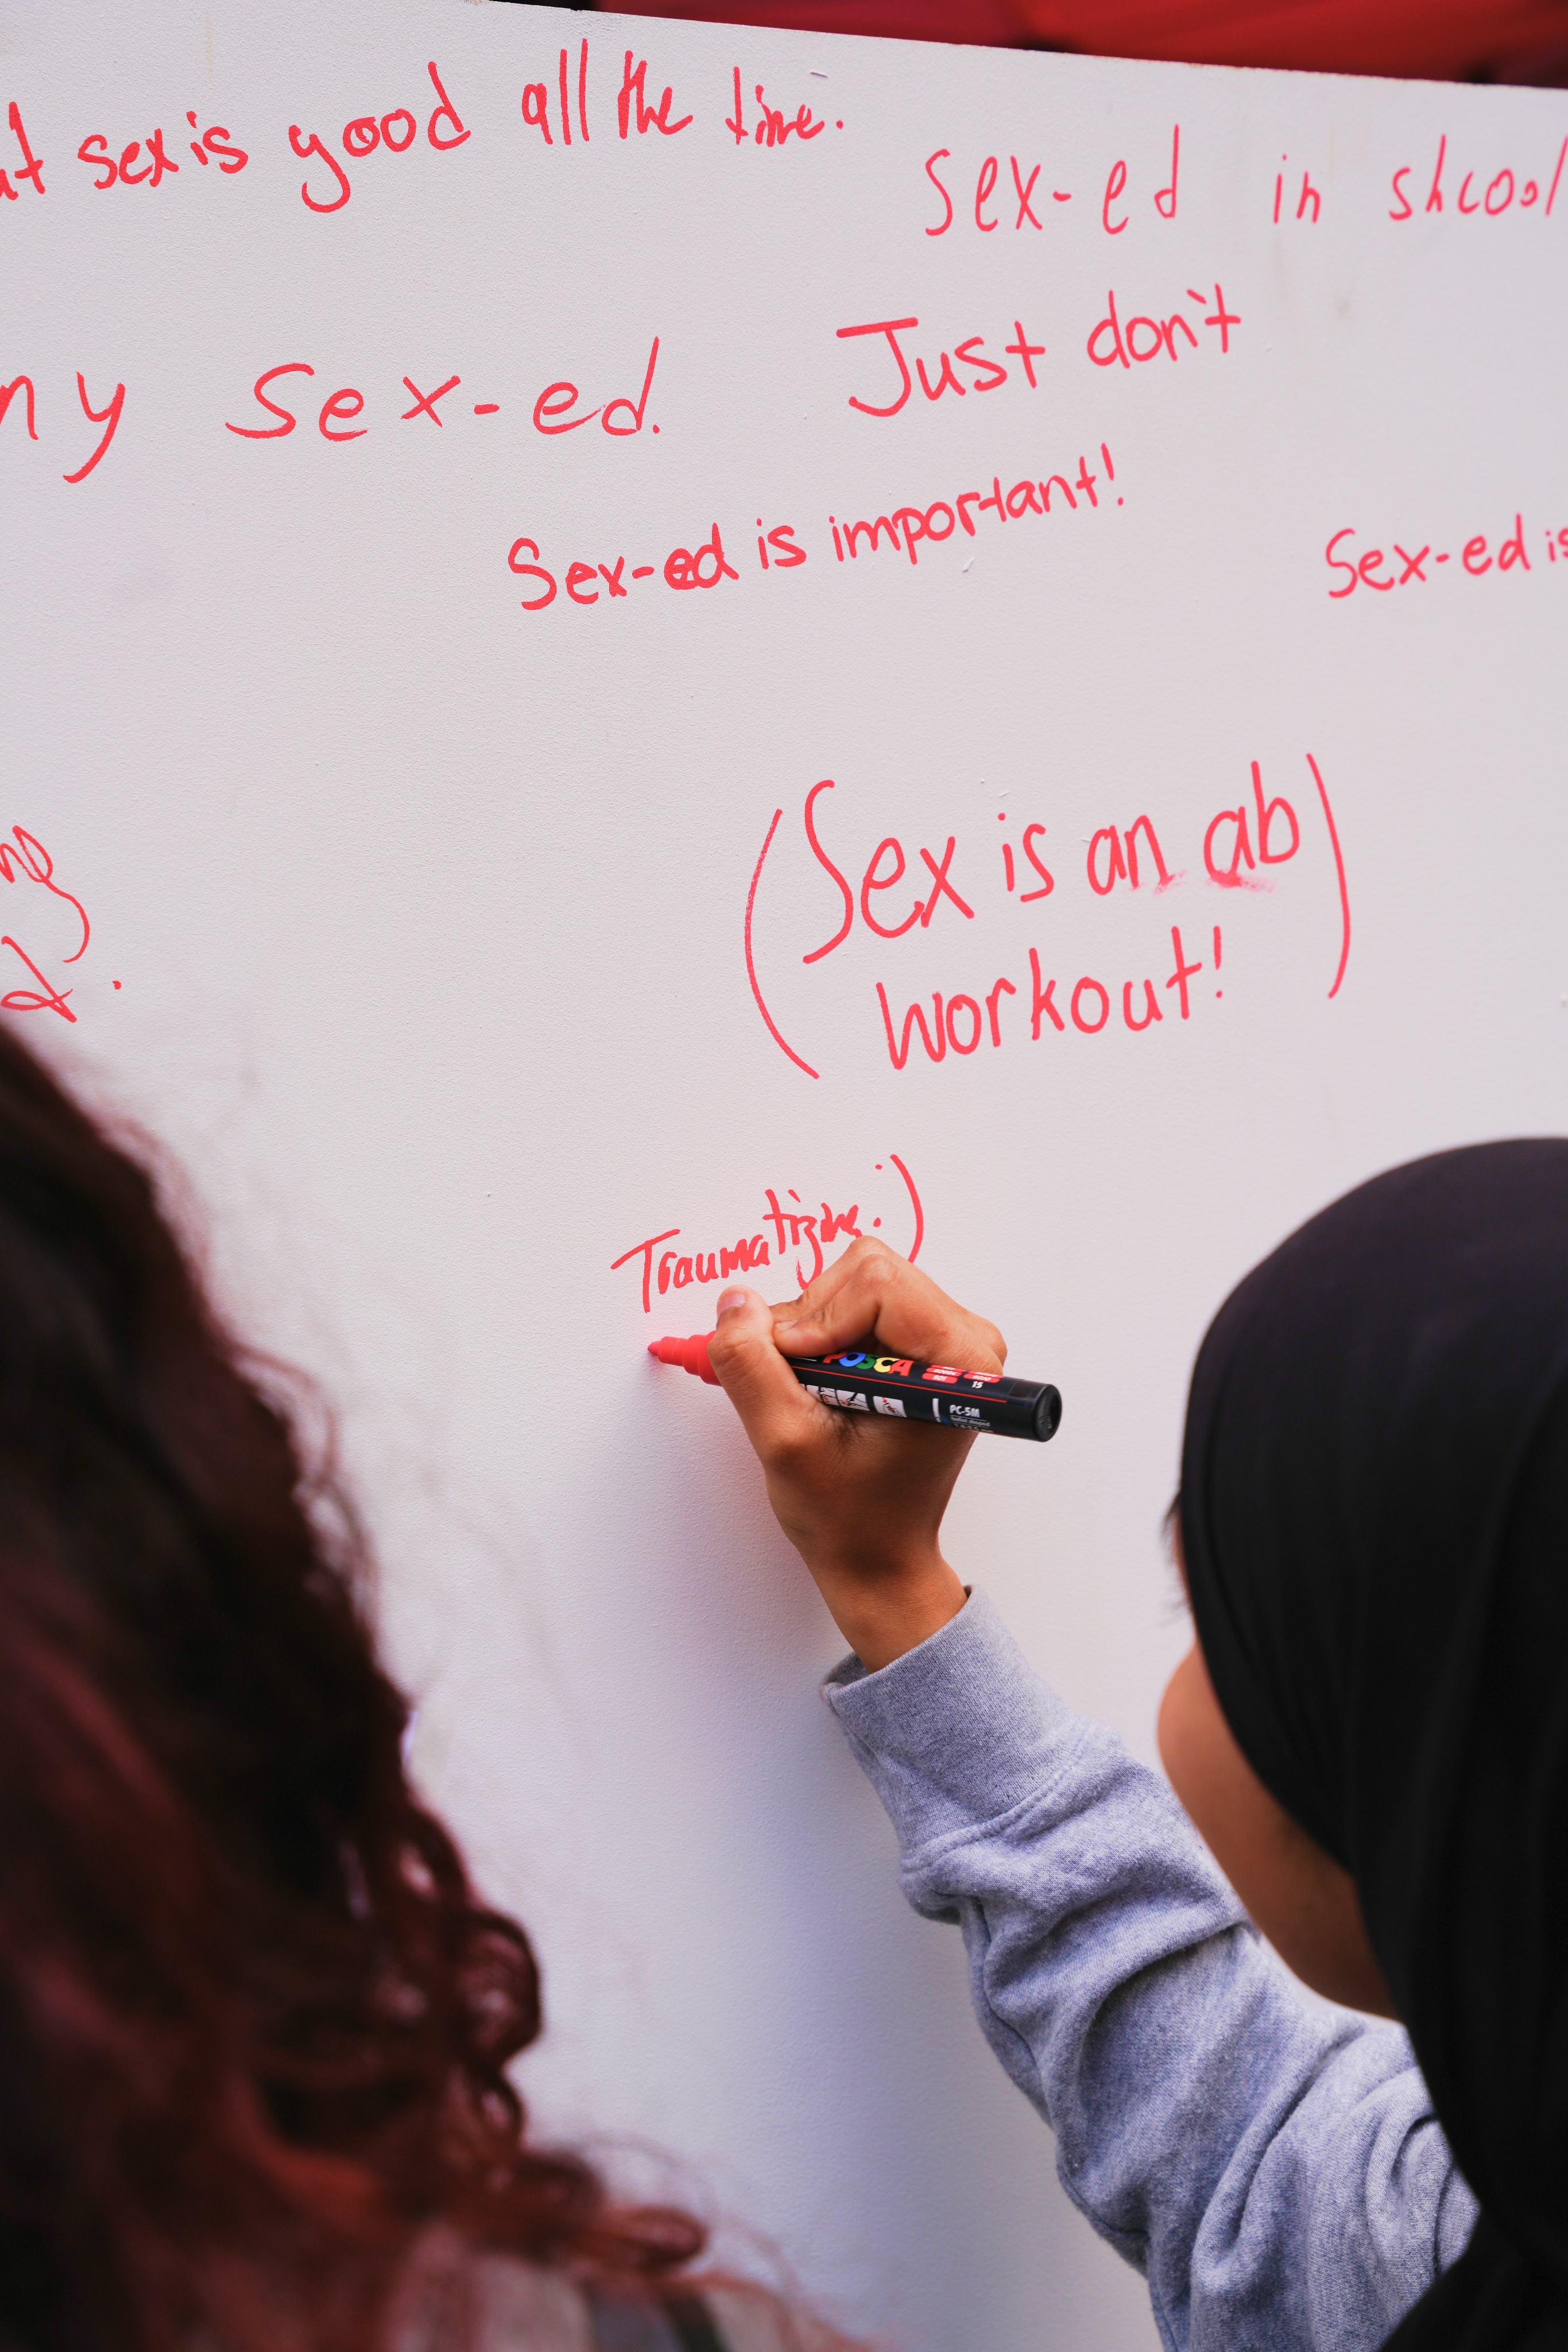 sex is good all the time.
sex-ed in shcool
my sex-ed.
Just don't
Sex-ed is important!
Sex-ed is
(Sex is an ab
workout!)
Traumatizing.)
POSCA
PC-5M
15